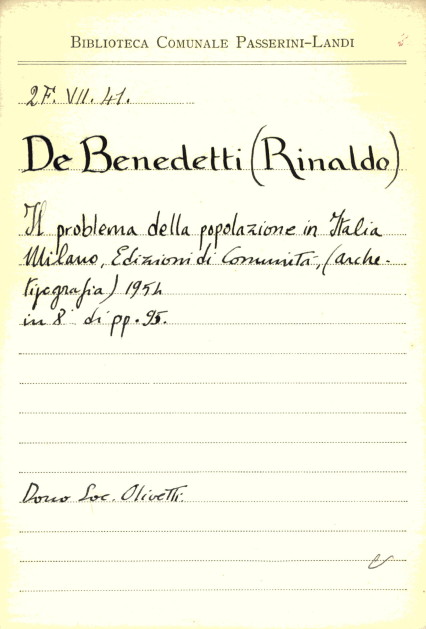 BIBLIOTECA COMUNALE PASSERINI-LANDI
2F. VII. 41.
De Benedetti (Rinaldo)
Il problema della popolazione in Italia
Milano, Edizioni di Comunità, (arche-
tipografia) 1954
in 8° di pp. 95.
Dono Soc. Olivetti.